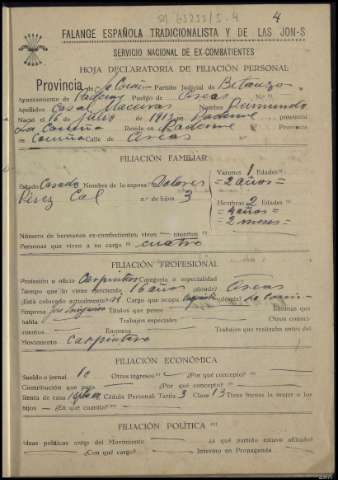 4
FALANGE ESPAÑOLA TRADICIONALISTA Y DE LAS JON-S
SERVICIO NACIONAL DE EX-COMBATIENTES
HOJA DECLARATORIA DE FILIACIÓN PERSONAL
Provincia de Partido Judicial de Betanzos
Ayuntamiento de Paderne Partijo de Oseas
Apellidos Casal Maceiras Nombre Raimundo
Nació el 16 de Julio de Paderne provincia
La Coruña Reside en Paderne
Coruña Calle de Oseas
FILIACIÓN FAMILIAR
Estado Casado Nombre de la esposa Dolores
Pérez Cal n.º de hijos 3
Varones 1 Edades
= 2 años =
Hembras 2 Edades
= 4 años =
= 2 meses =
Número de hermanos ex-combatientes vivos muertos
Personas que viven a su cargo cuatro
FILIACIÓN PROFESIONAL
Profesión u oficio Carpintero Categoría o especialidad
Tiempo que lo viene ejerciendo 16 años ¿dónde? Oseas
¿Está colocado actualmente? Cargo que ocupa ¿dónde? La Coruña
Empresa Títulos que posee Idiomas que
habla Trabajos especiales Otros conoci-
mientos Empresa Trabajos que realizaba antes del
Movimiento Carpintero
FILIACIÓN ECONÓMICA
Sueldo o jornal 10 Otros ingresos ¿Por qué concepto?
Contribución que paga ¿Por qué concepto?
Renta de casa Cédula Personal: Tarifa 3 Clase 13 Tiene bienes la mujer o los
hijos ¿En qué cuantía?
FILIACIÓN POLÍTICA
Ideas políticas antes del Movimiento ¿A qué partido estuvo afiliado?
¿Con qué cargo? Intervino en Propaganda